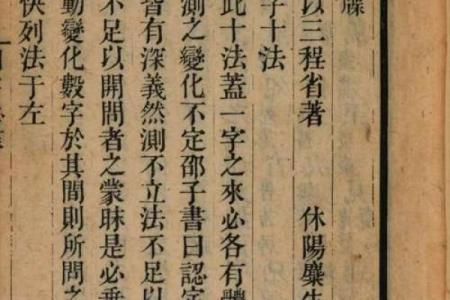 牒
以三程省著 休陽麋生
子十法
此十法蓋一字之來必各有體
測之變化不定邵子書曰認字
皆有深義然測不立法不足以
不足以開問者之蒙昧是必垂
動變化數字於其間則所問之
快列法于左